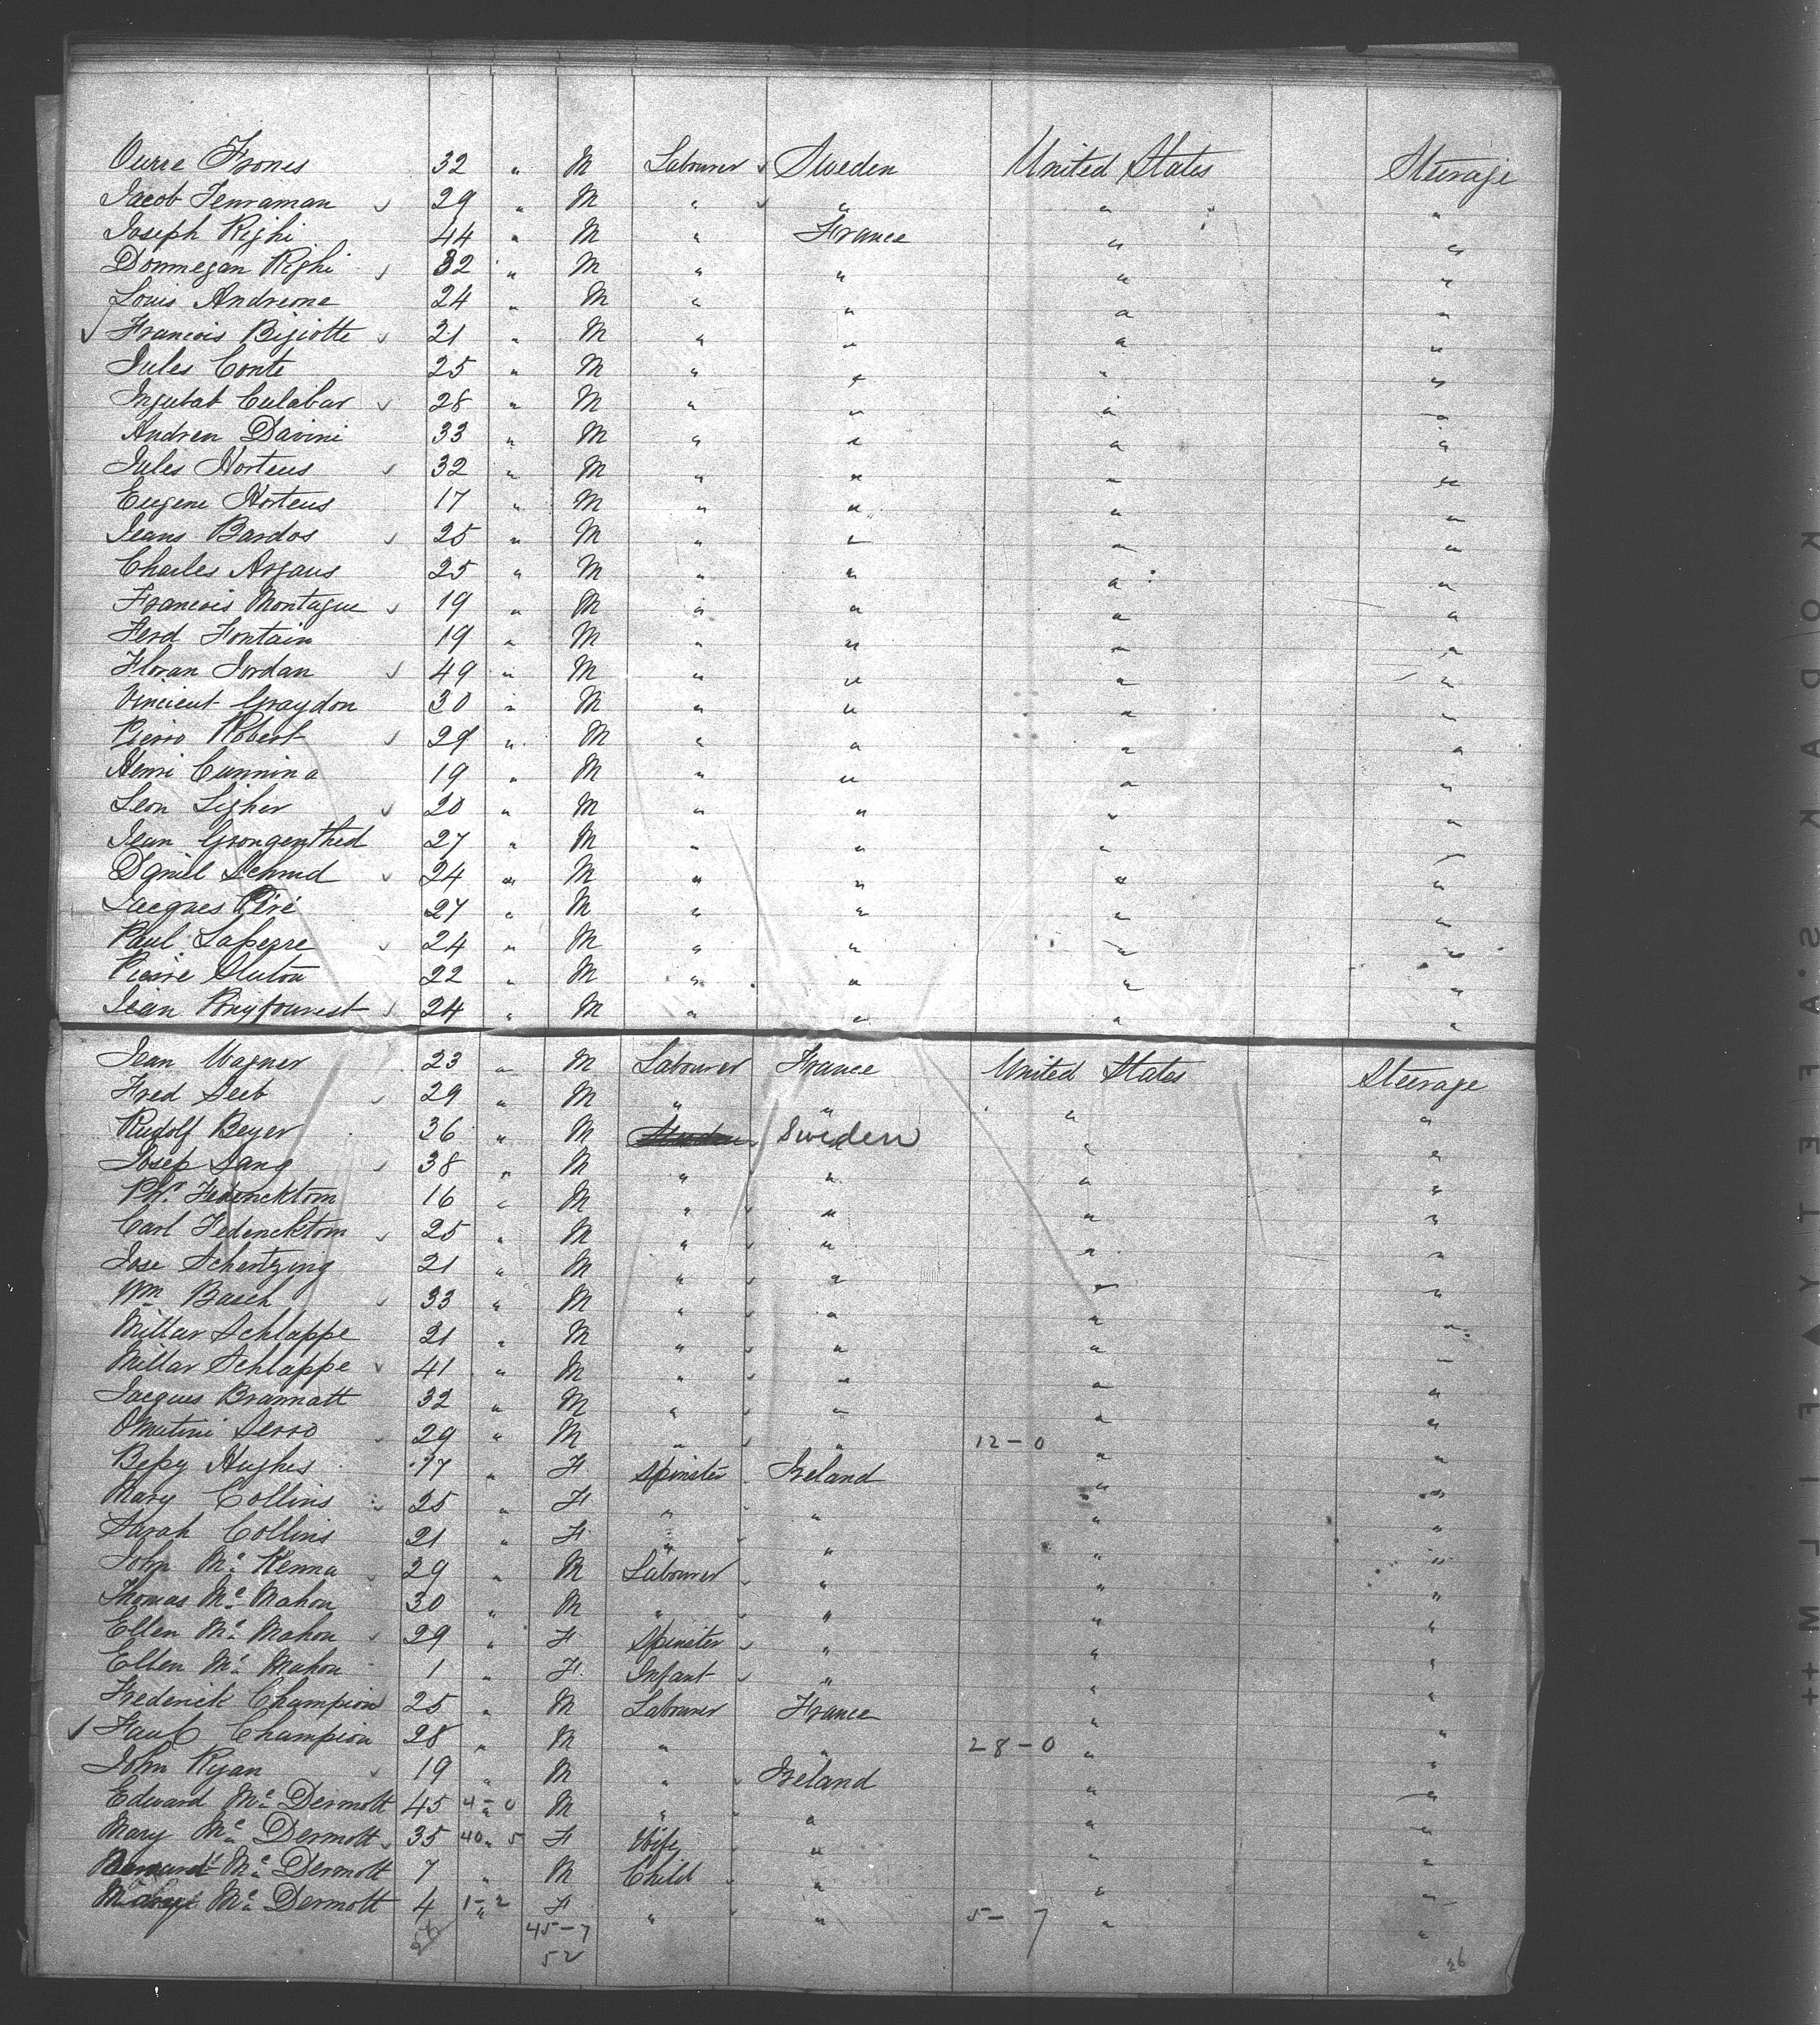 Ourre Frones 32 " M Labourer Sweden United States Steerage
Jacob Fenraman 29 " M " " " "
Joseph Righi 44 " M " France " "
Donmegan Righi 32 " M " " " "
Louis Andreone 24 " M " " " "
Francois Bigiotte 21 " M " " " "
Jules Conte 25 " M " " " "
Culabar 28 " M " " " "
Andren Davini 33 " M " " " "
Jules Horteus 32 " M " " " "
Eugene Horteus 17 " M " " " "
Jeans Bardos 25 " M " " " "
Charles Argaus 25 " M " " " "
Francois Montague 19 " M " " " "
Ferd Fontain 19 " M " " " "
Floran Jordan 49 " M " " " "
Vincient Graydon 30 " M " " " "
Pierro Robert 29 " M " " " "
Henri Cunnina 19 " M " " " "
Leon Ligher 20 " M " " " "
Jean Grongenthed 27 " M " " " "
Daniel Schmid 24 " M " " " "
Jacques Péré 27 " M " " " "
Paul Lapeyre 24 " M " " " "
Pierre Sluton 22 " M " " " "
Jean 24 " M " " " "
Jean Wagner 23 " M Labourer France United States Steerage
Fred Seeb 29 " M " " " "
Rudolf Beyer 36 " M Sweden " "
Josep Lang 38 " M " " " "
Fedencktom 16 " M " " " "
Carl Fedencktom 25 " M " " " "
Jose Schertzing 21 " M " " " "
Wm Basch 33 " M " " " "
Millar Schlappe 21 " M " " " "
Millar Schlappe 41 " M " " " "
Jacques Brannatt 32 " M " " " "
Serro 29 " M " " 12-0 " "
Bessy Hughes 17 " F Spinster Ireland " "
Mary Collins 25 " F " " " "
Sarah Collins 21 " F " " " "
John Mc Kenna 29 " M Labourer " " "
Thomas Mc Mahon 30 " M " " " "
Ellen Mc Mahon 29 " F Spinster " " "
Ellen Mc Mahon 1 " F Infant " " "
Frederick Champion 25 " M Labourer France " "
Paul Champion 28 " M " " 28-0 " "
John Ryan 19 " M " Ireland " "
Edward Mc Dermott 45 4-0 " M " " " "
Mary Mc Dermott 35 40 " 5 F Wife " " "
Bernard Mc Dermott 7 " M Child " " "
Mary Mc Dermott 4 1-2 " F " " 5-7 " "
45-7
52
26
KODAK SAFETY FILM ++